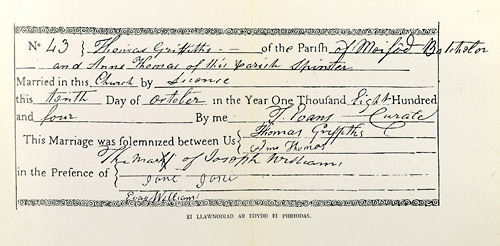 No 43 Thomas Griffiths — of the Parish of Meifod Batchelor
and Anne Thomas of this Parish Spinster
Married in this Church by Licence
this tenth Day of October in the Year One Thousand Eight Hundred
and four By me T. Evans — Curate
This Marriage was solemnized between Us { Thomas Griffiths
Ann Thomas
The Mark X of Joseph Williams
in the Presence of { Jane Jone
Evan William
EI LLAWNODIAD AR EDYDD EI PHRIODAS.